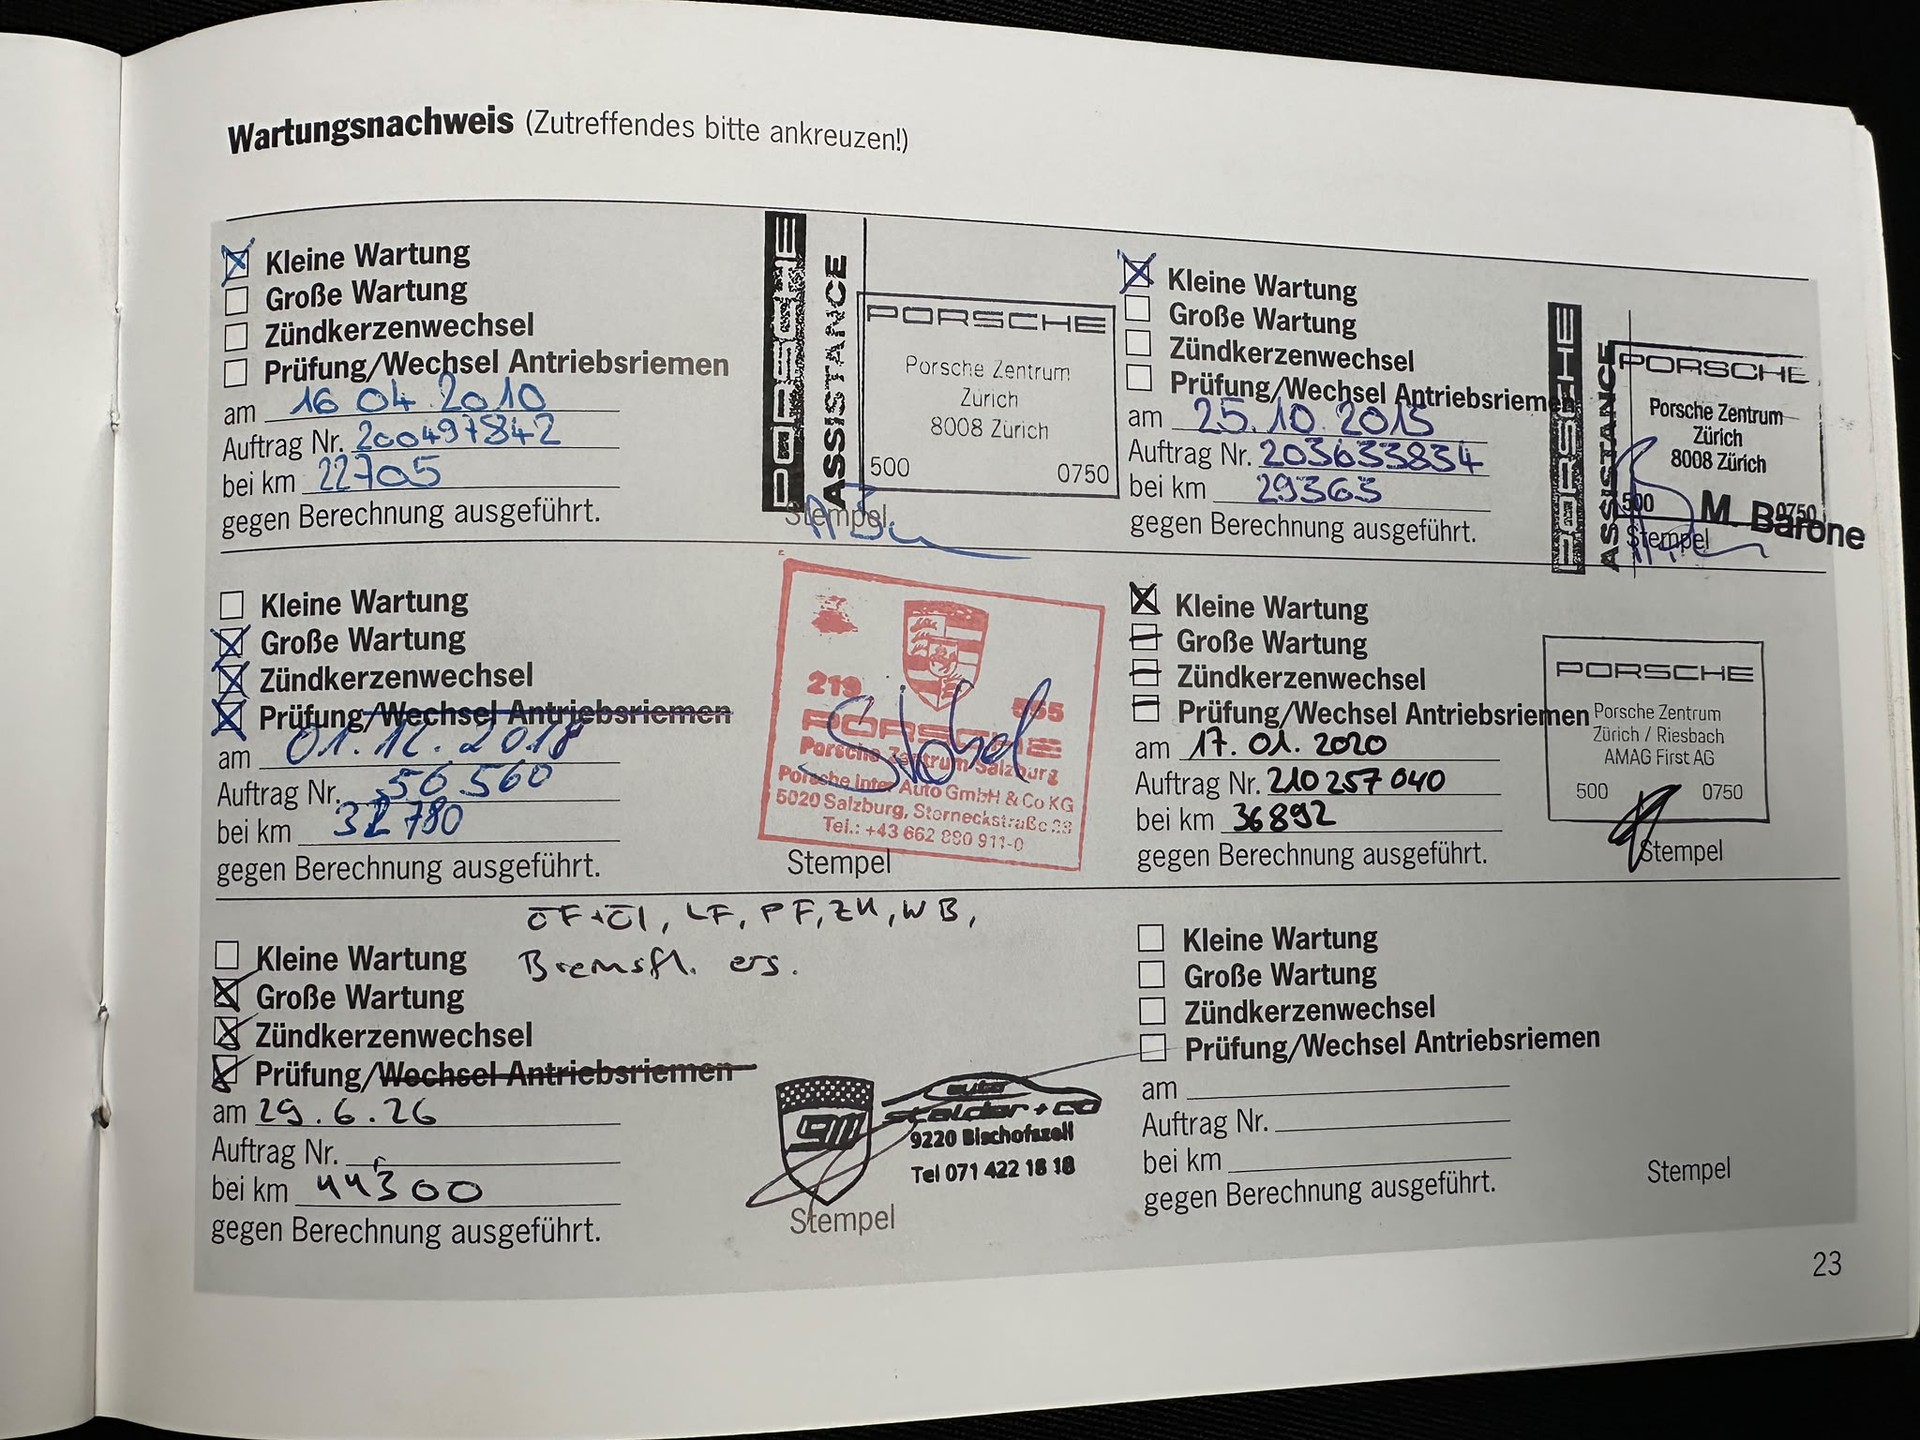 Wartungsnachweis (Zutreffendes bitte ankreuzen!)
Kleine Wartung
Große Wartung
Zündkerzenwechsel
Prüfung/Wechsel Antriebsriemen
am 16 04.2010
Auftrag Nr. 200497842
bei km 22705
gegen Berechnung ausgeführt.
PORSCHE
ASSISTANCE
PORSCHE
Porsche Zentrum
Zürich
8008 Zürich
500 0750
Stempel
Kleine Wartung
Große Wartung
Zündkerzenwechsel
Prüfung/Wechsel Antriebsriemen
am 25.10.2015
Auftrag Nr. 203633834
bei km 29363
gegen Berechnung ausgeführt.
PORSCHE
ASSISTANCE
PORSCHE
Porsche Zentrum
Zürich
8008 Zürich
500 0750
M. Barone
Stempel
Kleine Wartung
Große Wartung
Zündkerzenwechsel
Prüfung/Wechsel Antriebsriemen
am 01.12.2018
Auftrag Nr. 56560
bei km
gegen Berechnung ausgeführt.
219 555
PORSCHE
Porsche Zentrum Salzburg
Porsche Inter Auto GmbH & Co KG
5020 Salzburg, Sterneckstraße
Tel.: +43 662 880 911-0
Stempel
Kleine Wartung
Große Wartung
Zündkerzenwechsel
Prüfung/Wechsel Antriebsriemen
am 17.01.2020
Auftrag Nr. 210257040
bei km 36892
gegen Berechnung ausgeführt.
PORSCHE
Porsche Zentrum
Zürich / Riesbach
AMAG First AG
500 0750
Stempel
ÖF+Öl, LF, PF, ZK, WB,
Bremsfl. ers.
Kleine Wartung
Große Wartung
Zündkerzenwechsel
Prüfung/Wechsel Antriebsriemen
am 29.6.26
Auftrag Nr.
bei km 44300
gegen Berechnung ausgeführt.
auto
stalder + co
9220 Bischofszell
Tel 071 422 18 18
Stempel
Kleine Wartung
Große Wartung
Zündkerzenwechsel
Prüfung/Wechsel Antriebsriemen
am
Auftrag Nr.
bei km
gegen Berechnung ausgeführt.
Stempel
23